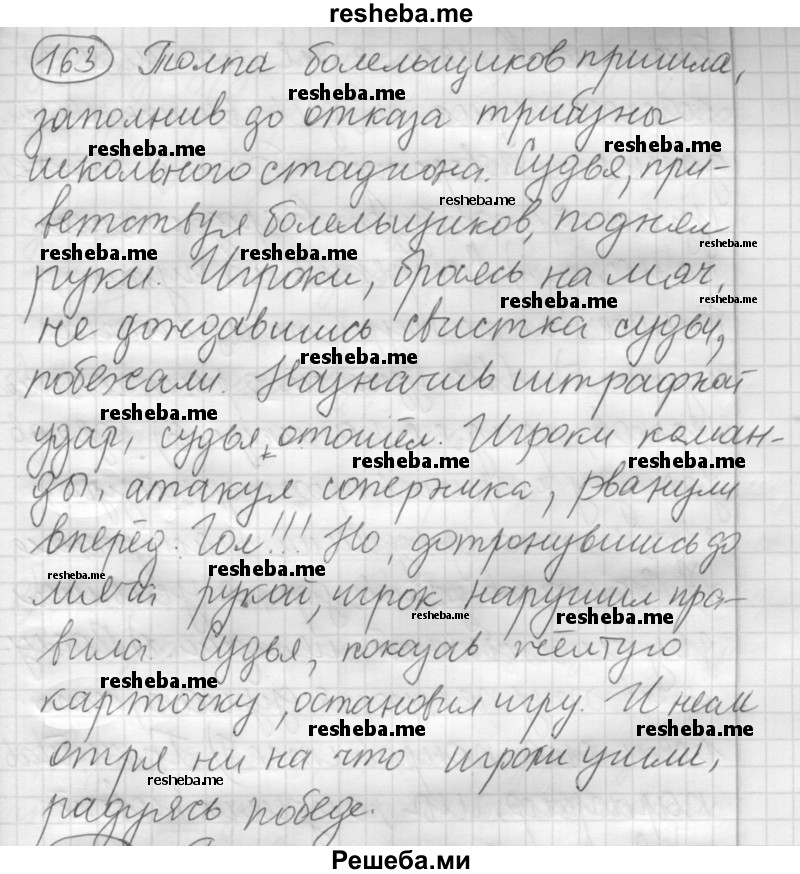 resheba.me
163 Толпа болельщиков пришла,
resheba.me
заполнив до отказа трибуны
resheba.me resheba.me
школьного стадиона. Судья, при-
resheba.me
ветствуя болельщиков, поднял
resheba.me resheba.me resheba.me
руки. Игроки, бросясь на мяч,
resheba.me resheba.me
не дождавшись свистка судьи,
resheba.me
побежали. Назначив штрафной
resheba.me
удар, судья отошёл. Игроки коман-
resheba.me resheba.me
ды, атакуя соперника, рванули
вперёд. Гол!!! Но, дотронувшись до
resheba.me resheba.me
мяча рукой, игрок нарушил пра-
resheba.me resheba.me
вила. Судья, показав жёлтую
resheba.me
карточку, остановил игру. И
resheba.me resheba.me
ни на что игроки ушли,
resheba.me
радуясь победе.
Решеба.ми